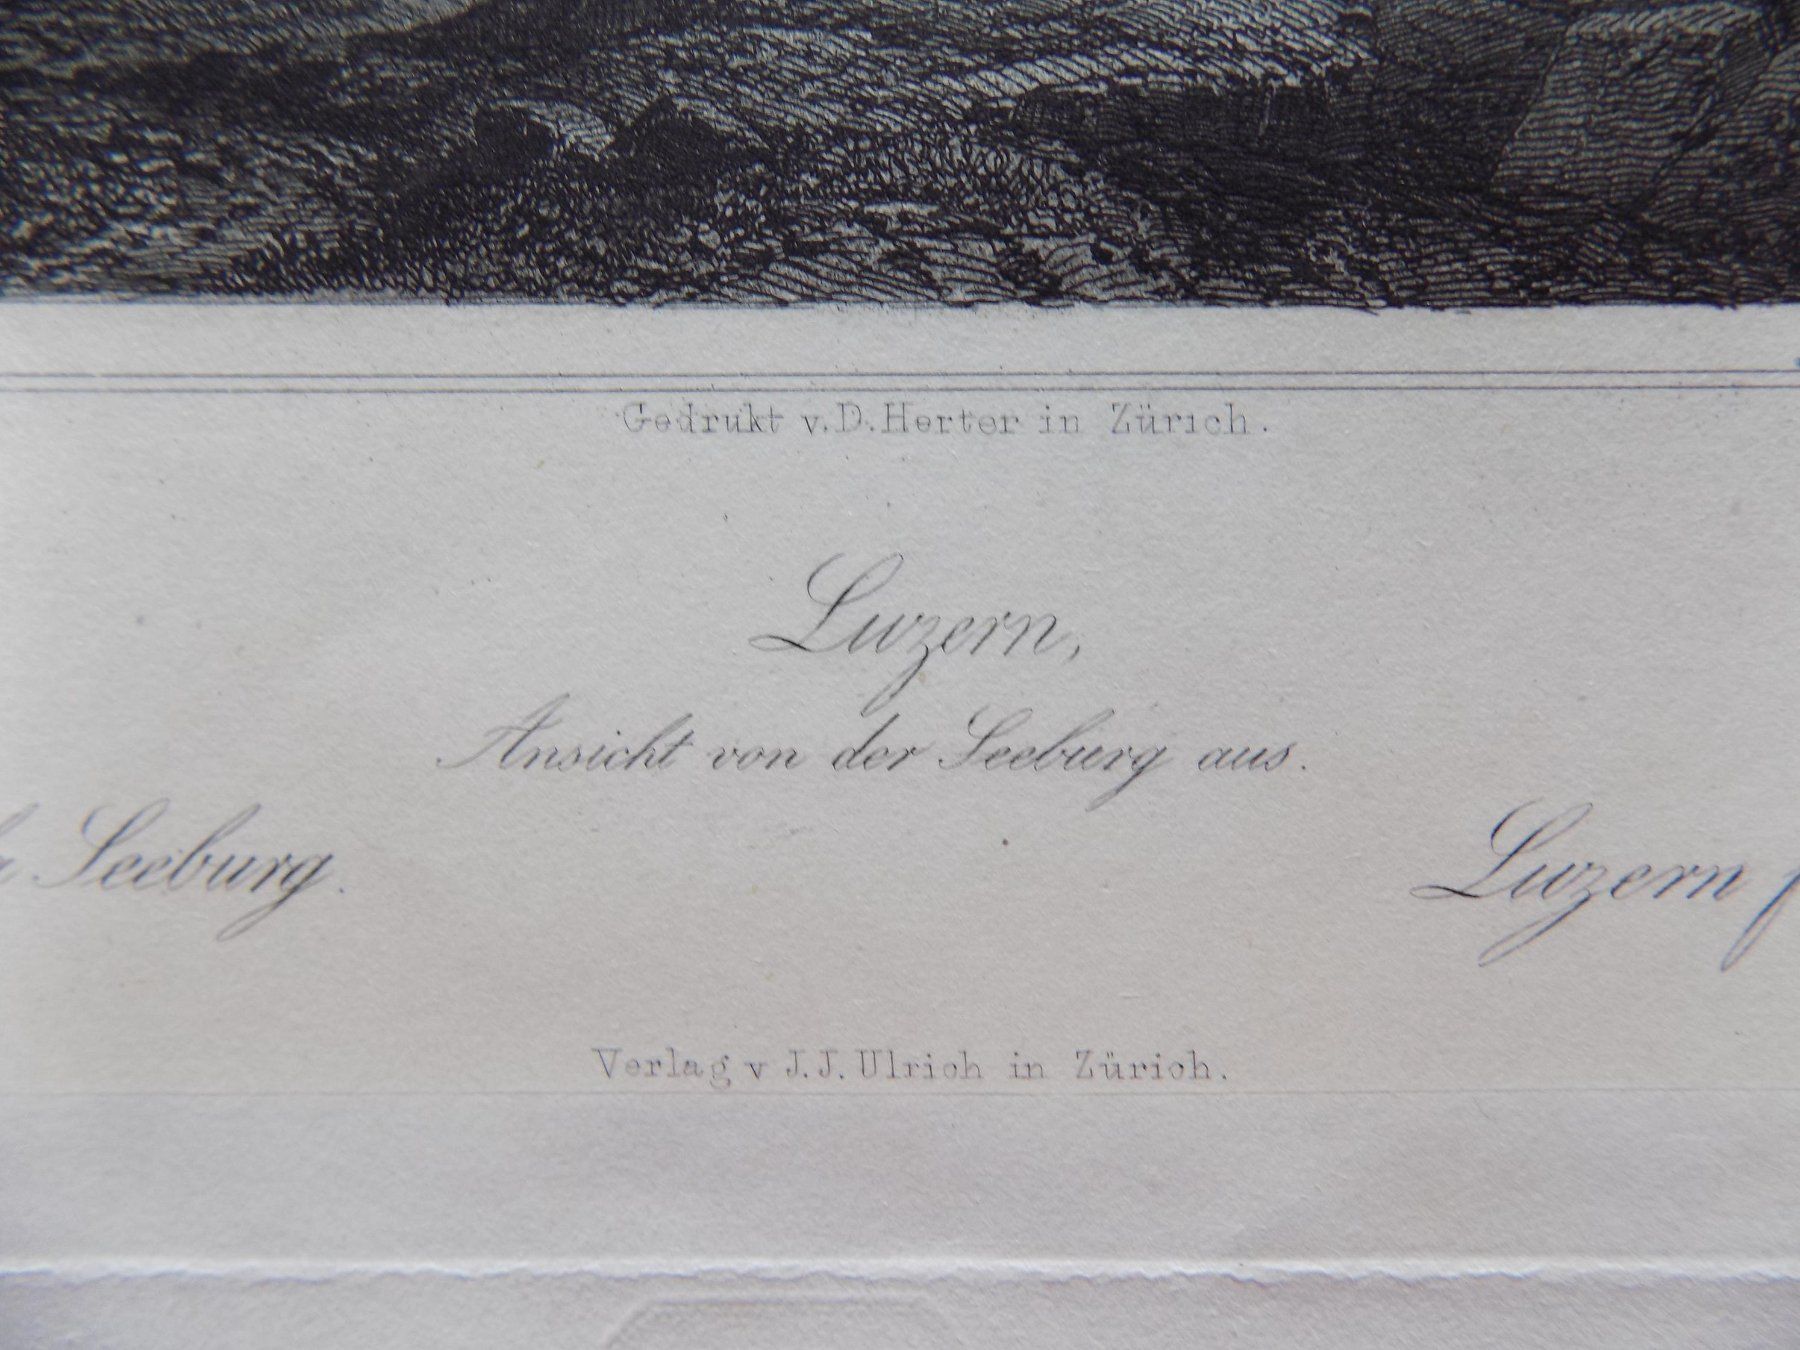 Gedrukt v. D. Herter in Zürich.
Luzern,
Ansicht von der Seeburg aus.
Seeburg.
Luzern
Verlag v J. J. Ulrich in Zürich.